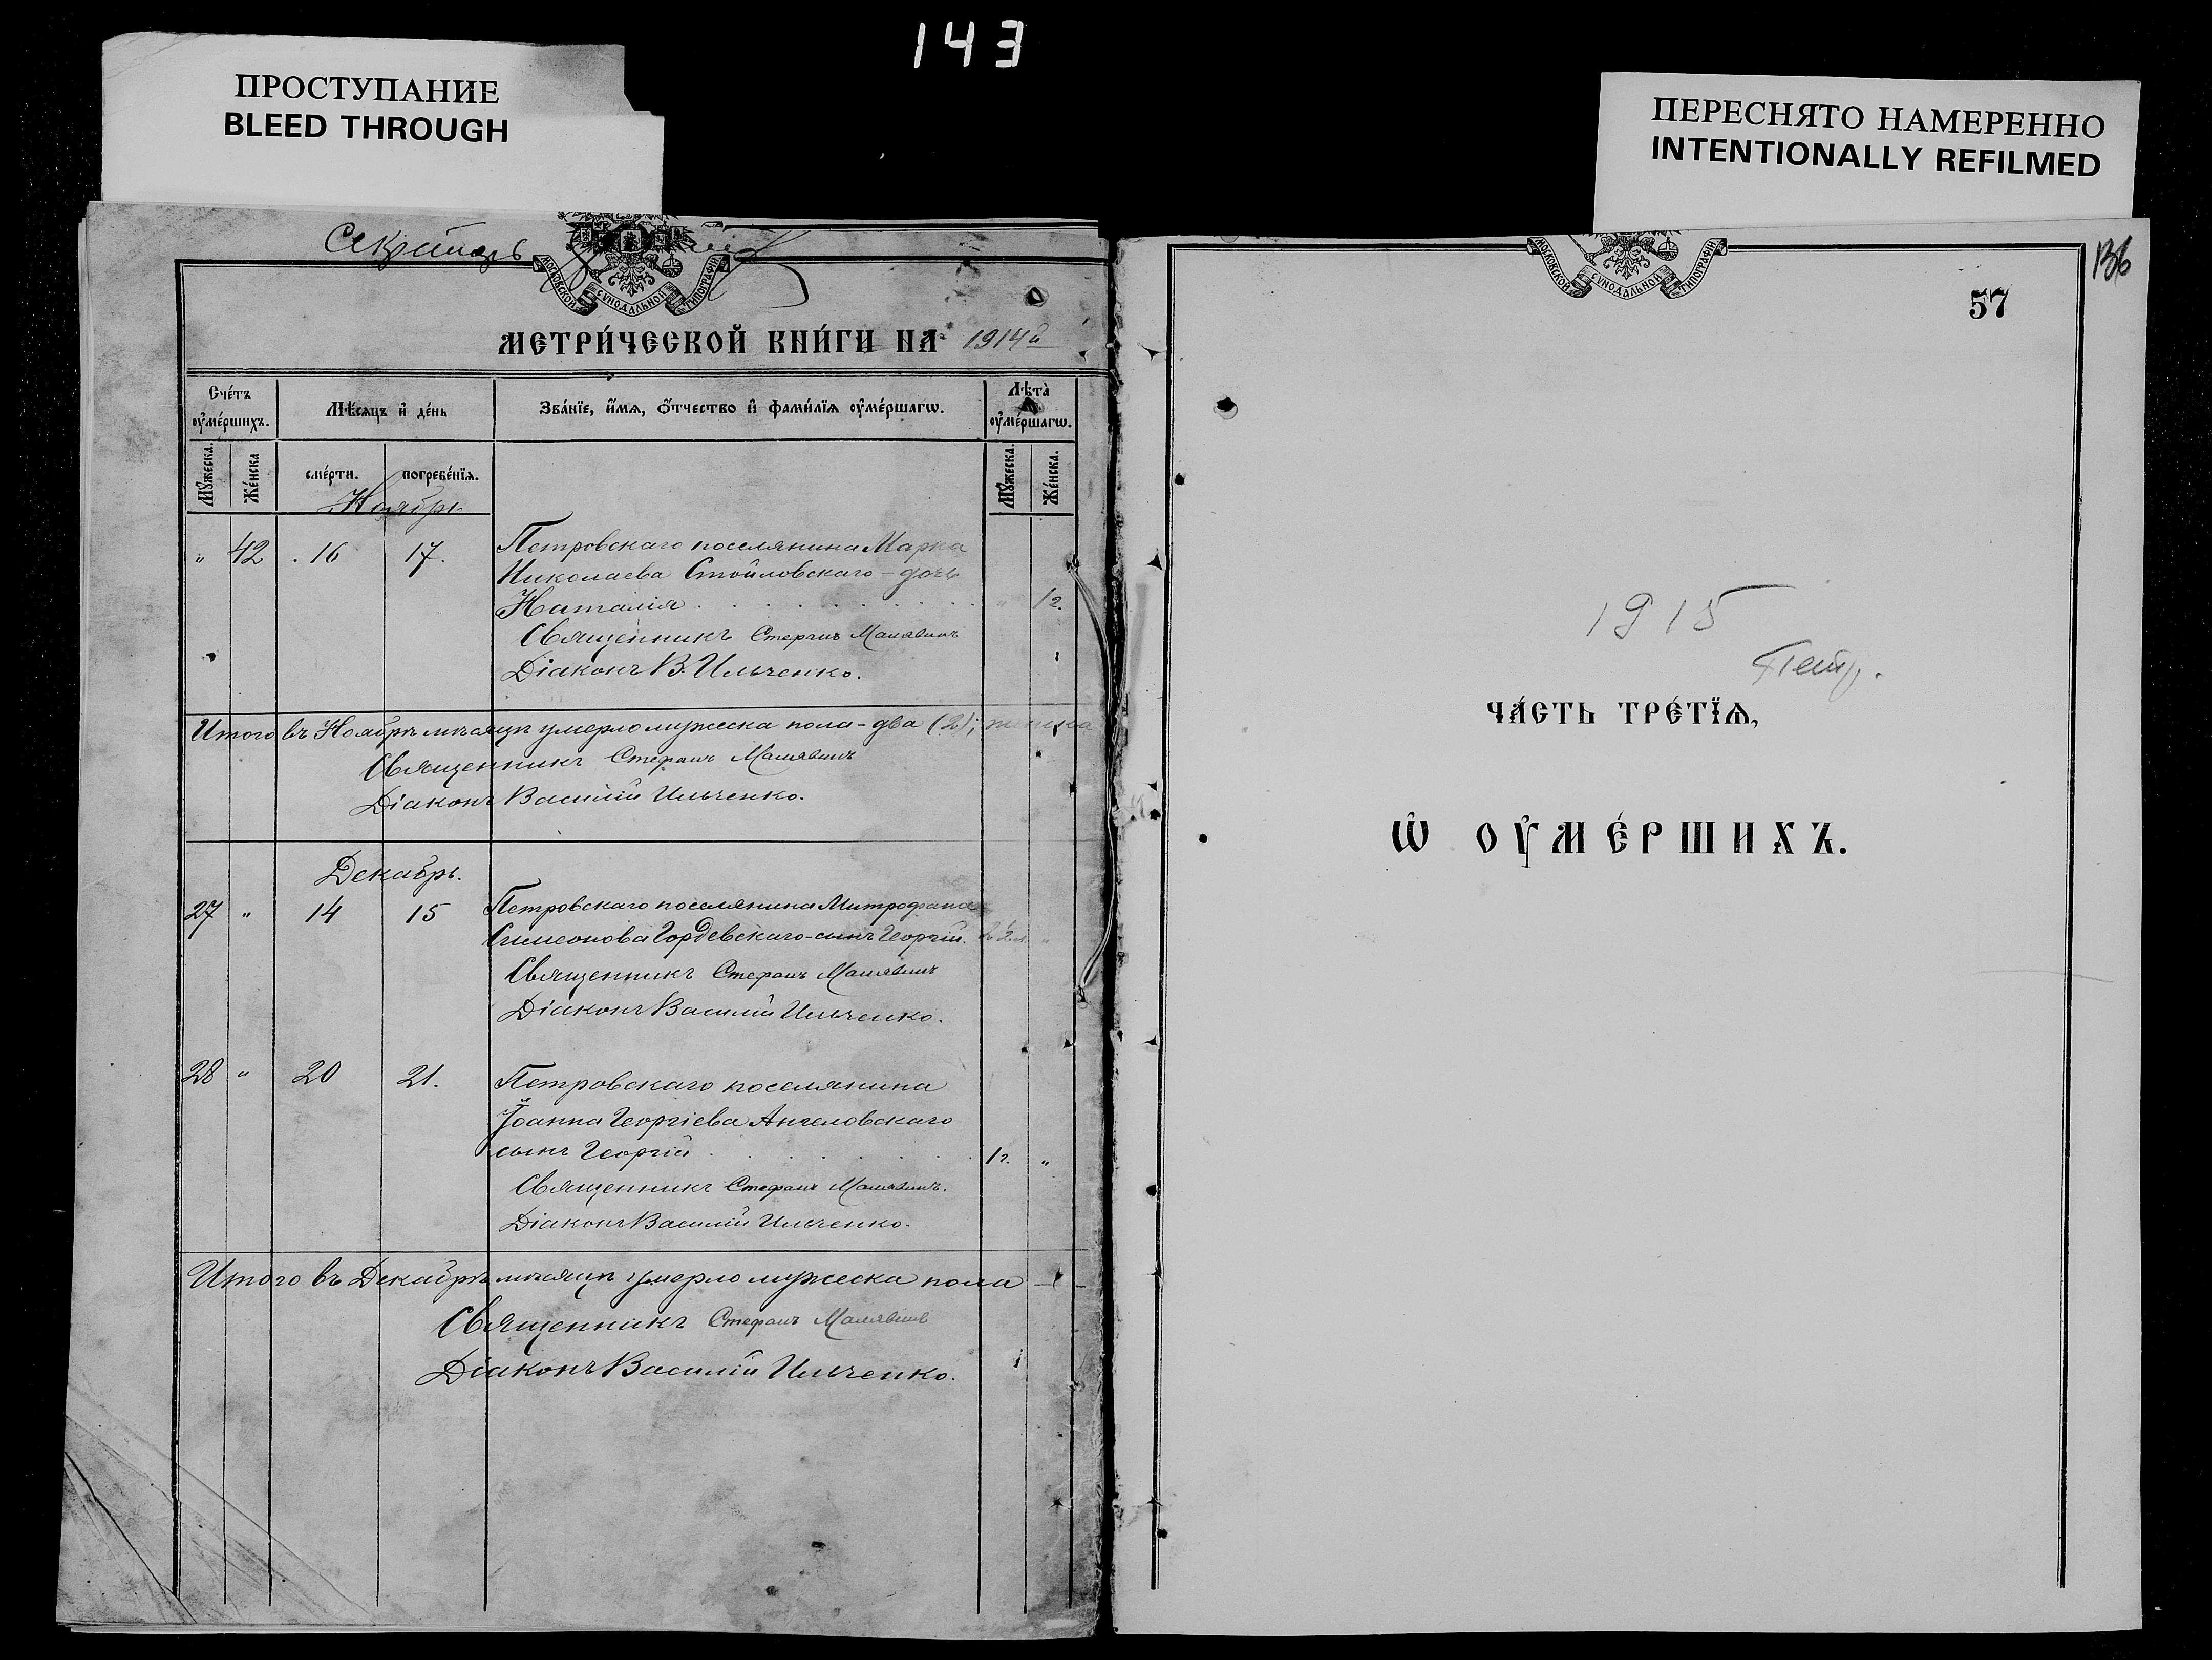 143
ПРОСТУПАНИЕ
BLEED THROUGH
ПЕРЕСНЯТО НАМЕРЕННО
INTENTIONALLY REFILMED
Секретарь
МОСКОВСКОЙ СѴНОДАЛЬНОЙ ТИПОГРАФІИ
МЕТРИ́ЧЕСКОЙ КНИ́ГИ НА 1914й
Сче́тъ оу҆ме́ршихъ.
Мѣ́сяцъ и҆ де́нь
Зва́нїе, и҆́мѧ, ѻ҆́тчество и҆ фами́лїѧ оу҆ме́ршагѡ.
Лѣта̀ оу҆ме́ршагѡ.
Мꙋ́жеска.
Же́нска
сме́рти.
погребе́нїѧ.
Мꙋ́жеска.
Же́нска.
Ноябрь
" 42 16 17. Петровскаго поселянина Марка
Николаева Стойловскаго - дочь
Наталія . . . . . . . . . " 1г.
Священникъ Стефанъ Малявинъ
Діаконъ В. Ильченко.
Итого въ Ноябрѣ мѣсяцѣ умерло мужеска пола - два (2); женска
Священникъ Стефанъ Малявинъ
Діаконъ Василій Ильченко.
Декабрь.
27 " 14 15 Петровскаго поселянина Митрофана
Симеонова Гордевскаго - сынъ Георгій. "
Священникъ Стефанъ Малявинъ
Діаконъ Василій Ильченко.
28 " 20 21. Петровскаго поселянина
Іоанна Георгіева Ангеловскаго
сынъ Георгій . . . . . . . 1г. "
Священникъ Стефанъ Малявинъ.
Діаконъ Василій Ильченко.
Итого въ Декабрѣ мѣсяцѣ умерло мужеска пола -
Священникъ Стефанъ Малявинъ
Діаконъ Василій Ильченко.
136
МОСКОВСКОЙ СѴНОДАЛЬНОЙ ТИПОГРАФІИ
57
1915
Петр.
ЧА́СТЬ ТРЕ́ТЇѦ,
Ѡ҆ ОУ҆МЕ́РШИХЪ.